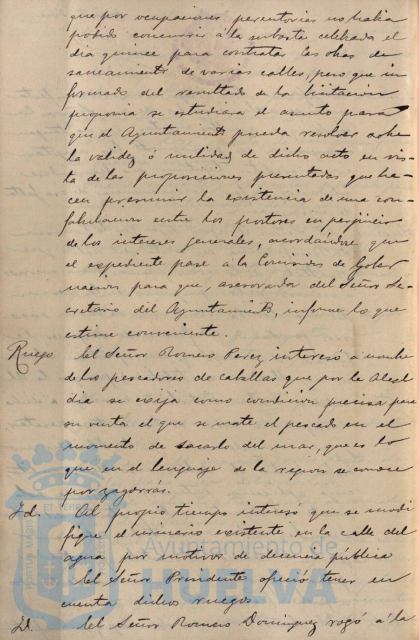 que por ocupaciones perentorias no habia
podido concurrir á la subasta celebrada el
dia quince para contratar las obras de
saneamiento de varias calles, pero que in
formado del resultado de la licitacion
proponia se estudiara el asunto para
que el Ayuntamiento pueda resolver sobre
la validez ó nulidad de dicho acto en vis-
ta de las proposiciones presentadas que ha-
cen presumir la existencia de una con-
fabulacion entre los postores en perjuicio
de los intereses generales, acordándose que
el expediente pase á la Comision de Gober
nacion para que, asesorador del Señor Se-
cretario del Ayuntamiento, informe lo que
estime conveniente.
Ruego. El Señor Romero Perez interesó a nombre
de los pescadores de caballas que por la Alcal
dia se exija como condicion precisa para
su venta el que se mate el pescado en el
momento de sacarlo del mar, que es lo
que en el lenguaje de la region se conoce
por zagarrás.
Id. Al propio tiempo interesó que se modi
fique el urinario existente en la calle del
agua por motivos de decencia pública
El Señor Presidente ofreció tener en
cuenta dichos ruegos.
Id. El Señor Romero Dominguez rogó á la
Ayuntamiento de
HUELVA